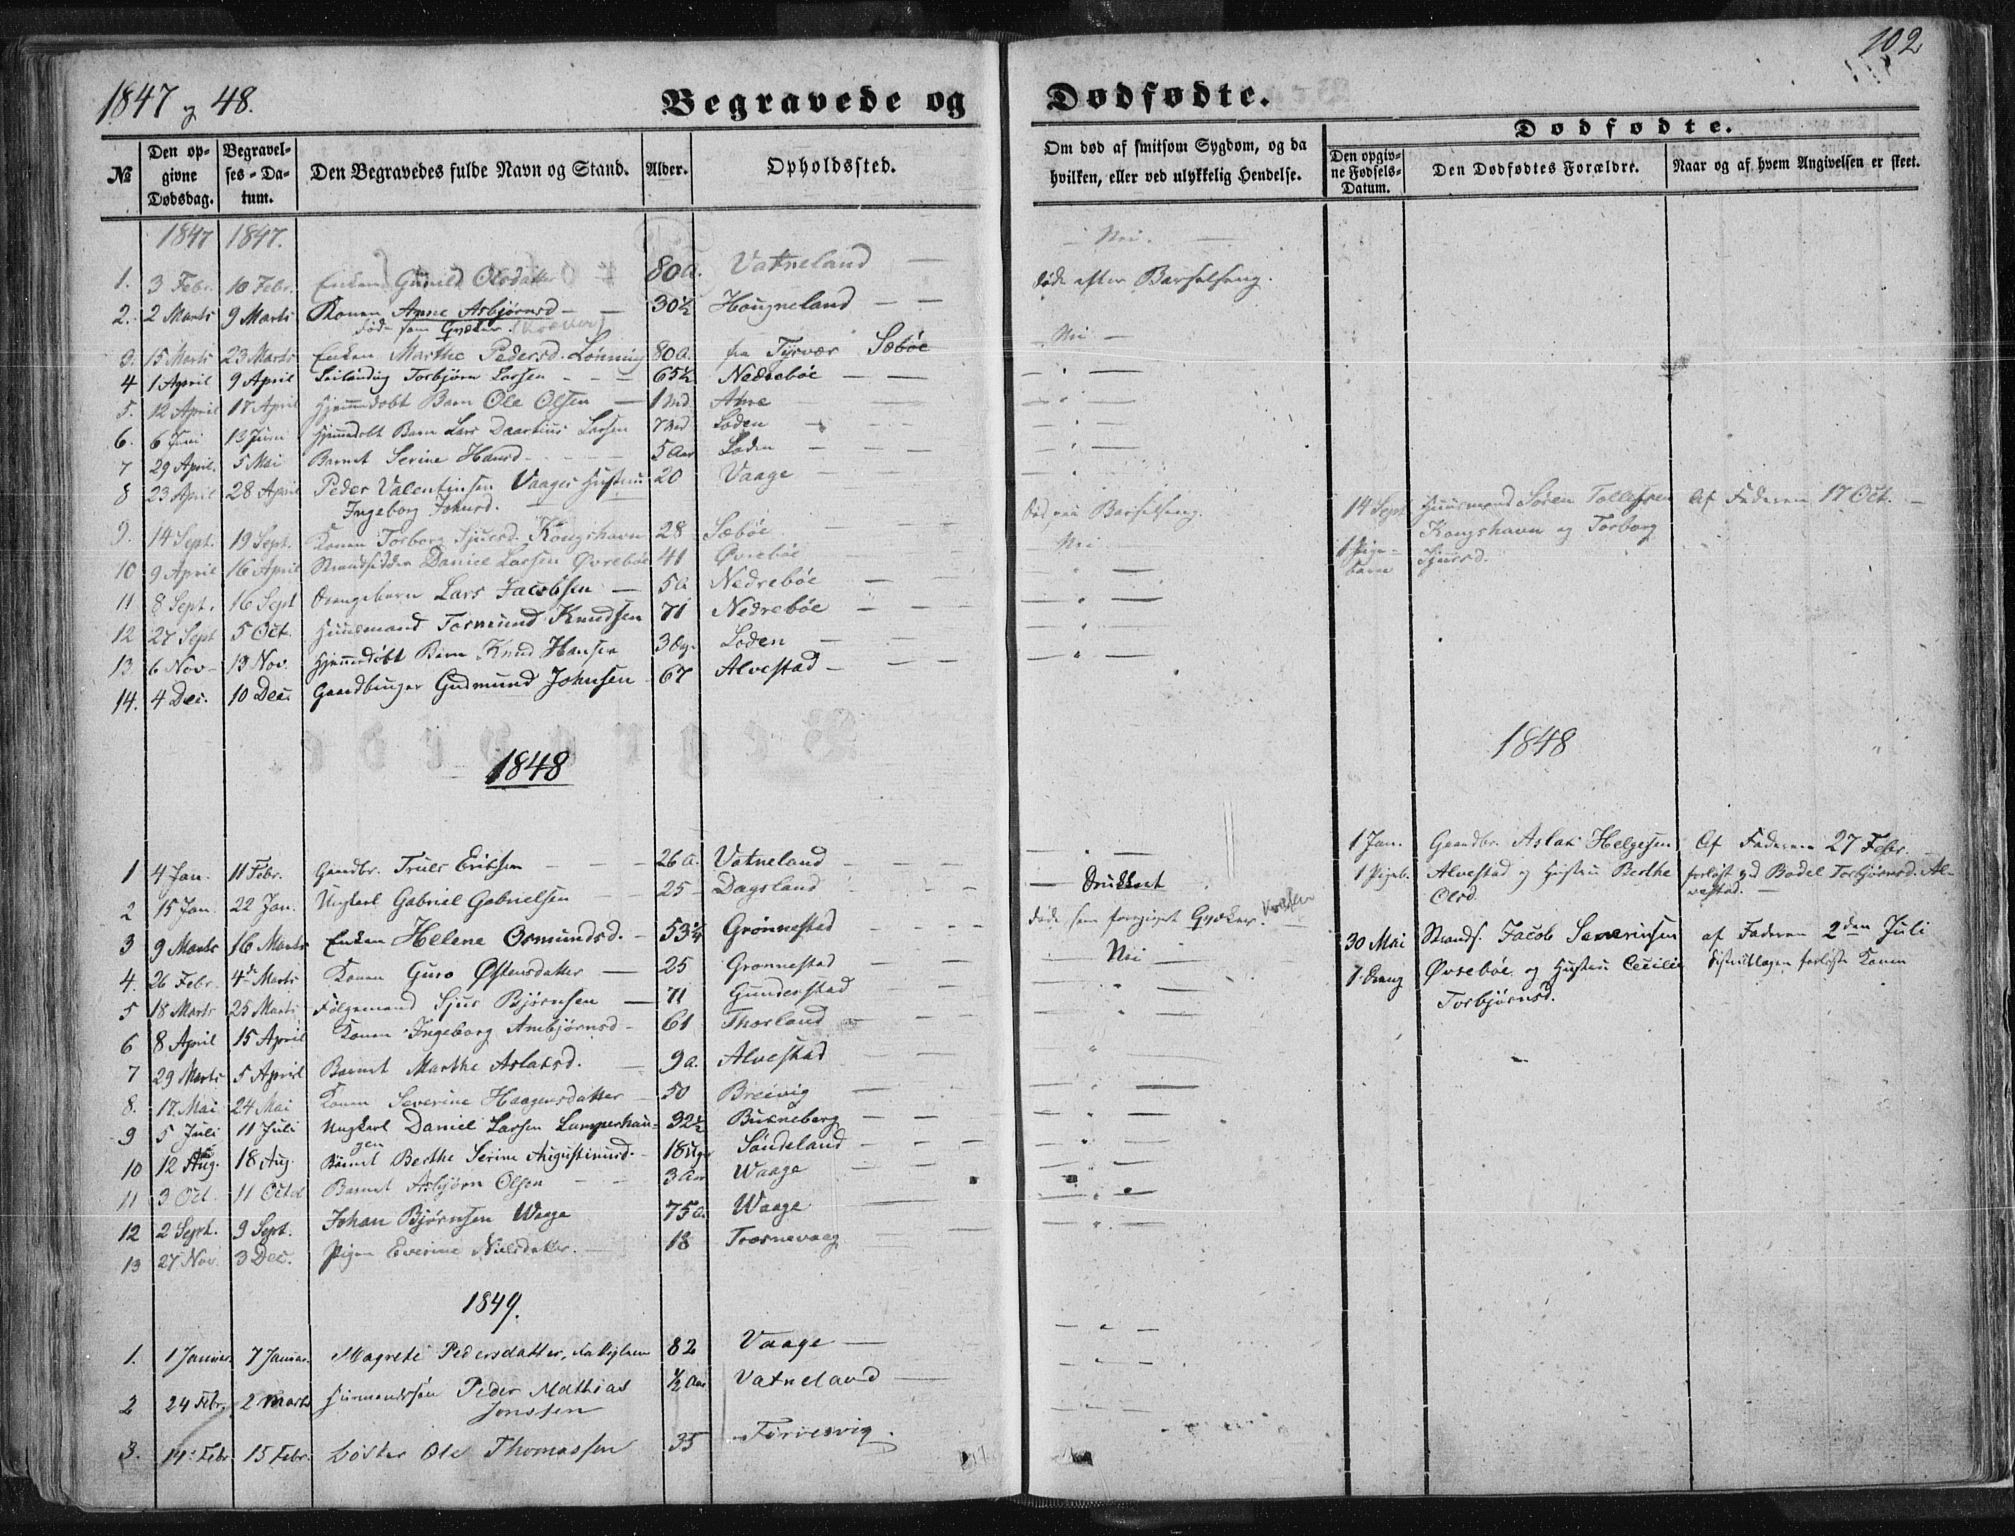 102
1847 og 48.
Begravede og Dødfødte.
№
Den opgivne Dødsdag.
Begravelses-Datum.
Den Begravedes fulde Navn og Stand.
Alder.
Opholdssted.
Om død af smitsom Sygdom, og da hvilken, eller ved ulykkelig Hendelse.
Dødfødte.
Den opgivne Fødsels-Datum.
Den Dødfødtes Forældre.
Naar og af hvem Angivelsen er skeet.
1847 1847.
1. 3 Febr. 10 Febr. Enken Gunild Olsdatter 80 a. Vatneland — Nei. —
2. 2 Marts 9 Marts Konen Anne Asbjørnsd — 30½ Hougneland — — døde efter Barselseng.
døde som
3. 15 Marts 23 Marts Enken Marthe Pedersd. Lønning 80 a. fra Tysvær Sæbøe — Nei —
4 1 April 9 April Leilænding Torbjørn Larsen - - - 65½ Nedrebøe — — " —
5. 12 April 17 April Hjemmedøbt Barn Ole Olsen — 1 Md. Aane — " —
6. 6 Juni 13 Juni Hjemmedøbt Barn Lars Larsen 7 Md Loden - — " —
7 29 April. 5 Mai Barnet Serine Hansd - - - - 5 Aar Loden — — " —
8 23 April 28 April Peder Valentinsen Vaages Hustru 20 Vaage —
Ingeborg Johnsd. —
9. 14 Sept. 19 Sept. Konen Torborg Sjursd. Kongshavn 28 — Sæbøe — død paa Barselseng.
10 9 April 16 April Strandsidder Daniel Larsen Øvrebøe 41 Øvrebøe — Nei —
11 8 Sept. 16 Sept Drengebarn Lars Jacobsen — 5 a Nedrebøe — — " —
12 27 Sept 5 Oct. Huusmand Tormund Knudsen 71 Nedrebøe — — " —
13 6 Nov — 13 Nov. Hjemmedøbt Barn Knud Hansen Loden — — " —
14. 4 Dec. 10 Dec. Gaardbruger Gudmund Johnsen 67 Alvestad — — " —
14 Sept Huusmand Søren Tollefsen Af Faderen 17 Oct. —
1 Pige- Kongshavn og Torborg
barn Sjursd.
1848
1848
1 4 Jan. 11 Febr. Gaardbr. Truls Eriksen — 26 a. Vatneland — — " —
2 15 Jan. 22 Jan. Ungkarl Gabriel Gabrielsen — 25 — Dagsland — Drukket
3 9 Marts 16 Marts Enken Helene Osmundsd. - 53¼ Grønnestad —
4. 26 Febr. 4de Marts Konen Guro Østensdatter — 25 Grønnestad — Nei —
5 18 Marts 25 Marts Følgemand Sjur Bjørnsen — 71 Gunderstad — — " —
6 8 April 15 April Konen Ingeborg Ambjørnsd - 61 Thorland — — " —
7 29 Marts 5 April Barnet Marthe Aslaksd. — 9 a. Alvestad — — " —
8. 17. Mai 24 Mai Konen Severine Haagensdatter — 50 Breivig — — " —
9 5 Juli 11 Juli Ungkarl Daniel Larsen Lumperhau- 32½ Buxneberg — — " —
gen
10 12 Aug. 18 Aug. Barnet Berthe Serine Augustinusd. - 18 Uger Søndeland — — " —
11 3 Oct. 11 Octol Barnet Asbjørn Olsen - - 3 Aar Waage — — " —
12 2 Sept. 9 Sept. Johan Bjørnsen Waage 75 a. Waage — — " —
13 27 Nov. 3 Dec. Pigen Everine Nielsdatter. — 18 Trosnevaag — " —
1 Jan. Gaardbr. Aslak Helgesen Af Faderen 27 Febr.
1 Pigeb. Alvestad og Hustru Berthe forløst ved Bodel Torbjørnsd. Al-
Olsd. vestad. —
30 Mai Strands. Jacob Severinsen af Faderen 2den Juli
1 Dreng Øvrebøe og Hustru Cecilie Distriktlægen forløste Konen
Torbjørnsd.
1849.
1. 1 Januar 7 Januar Magrete Pedersdatter, 82 Vaage — — " —
2 24 Febr. 2 Marts Huusmandssøn Peder Mathias ½ Aar Vatneland — — " —
Jonssen
3. 14. Febr 15 Febr. Ole Thomassen 35 Førresvig.